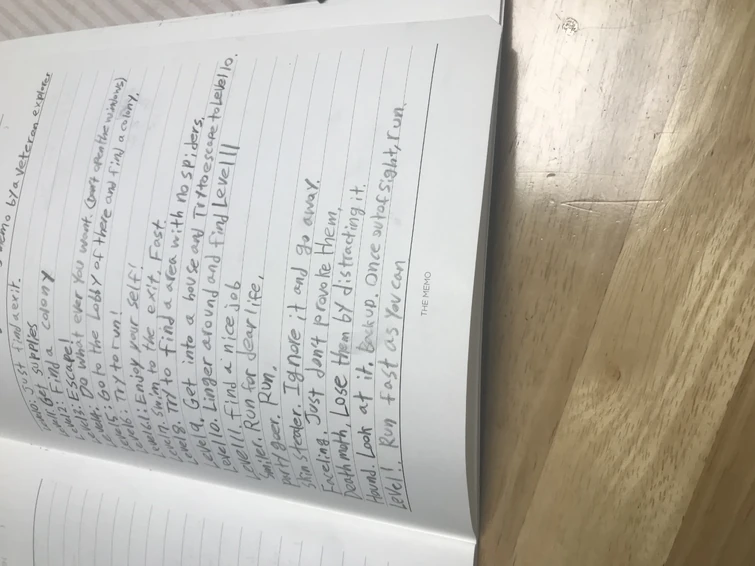 memo by a veteran explorer
Just find a exit.
Get supplies
Level2: Find a colony
Level3: Escape!
Do what ever you want. (Don't open the windows)
Level5: Go to the Lobby of there and find a colony.
Level6: Try to run!
Level6.1: Enjoy your self!
Level7. Swim to the exit, Fast.
Level8. Try to find a area with no spiders.
Level9. Get into a house and Try to escape to Level10.
Level10. Linger around and find Level11!
Level11. find a nice job
Smiler. Run for dear life,
party goer. Run,
Skin Stealer. Ignore it and go away.
Faceling. Just don't provoke them,
Death moth, Lose them by distracting it.
Hound. Look at it. backup. Once out of sight, run.
Level!. Run fast as You can
THE MEMO